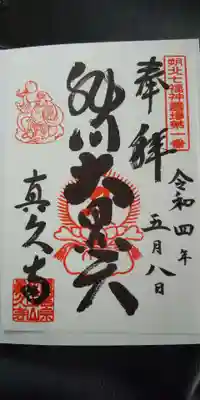 朔北七福神霊場第一番
奉拝
令和四年
五月八日
大黒天
真久寺